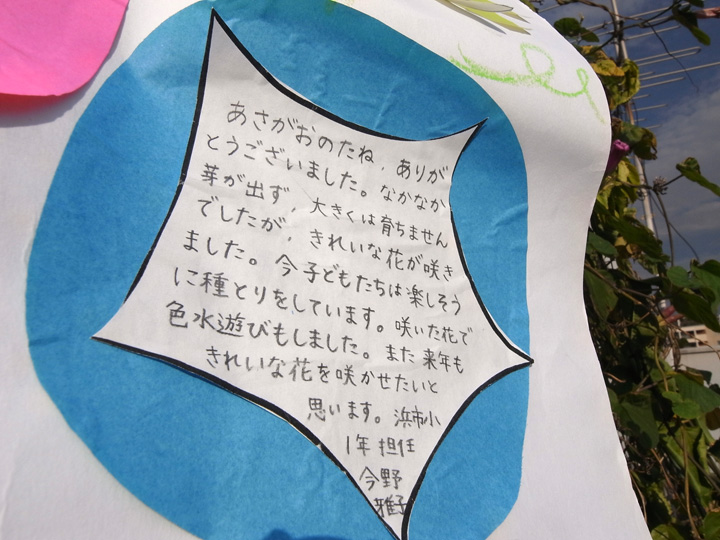 あさがおのたね、ありが
とうございました。なかなか
芽が出ず、大きくは育ちません
でしたが、きれいな花が咲き
ました。今子どもたちは楽しそう
に種とりをしています。咲いた花で
色水遊びもしました。また来年も
きれいな花を咲かせたいと
思います。浜市小
1年担任
今野
雅子